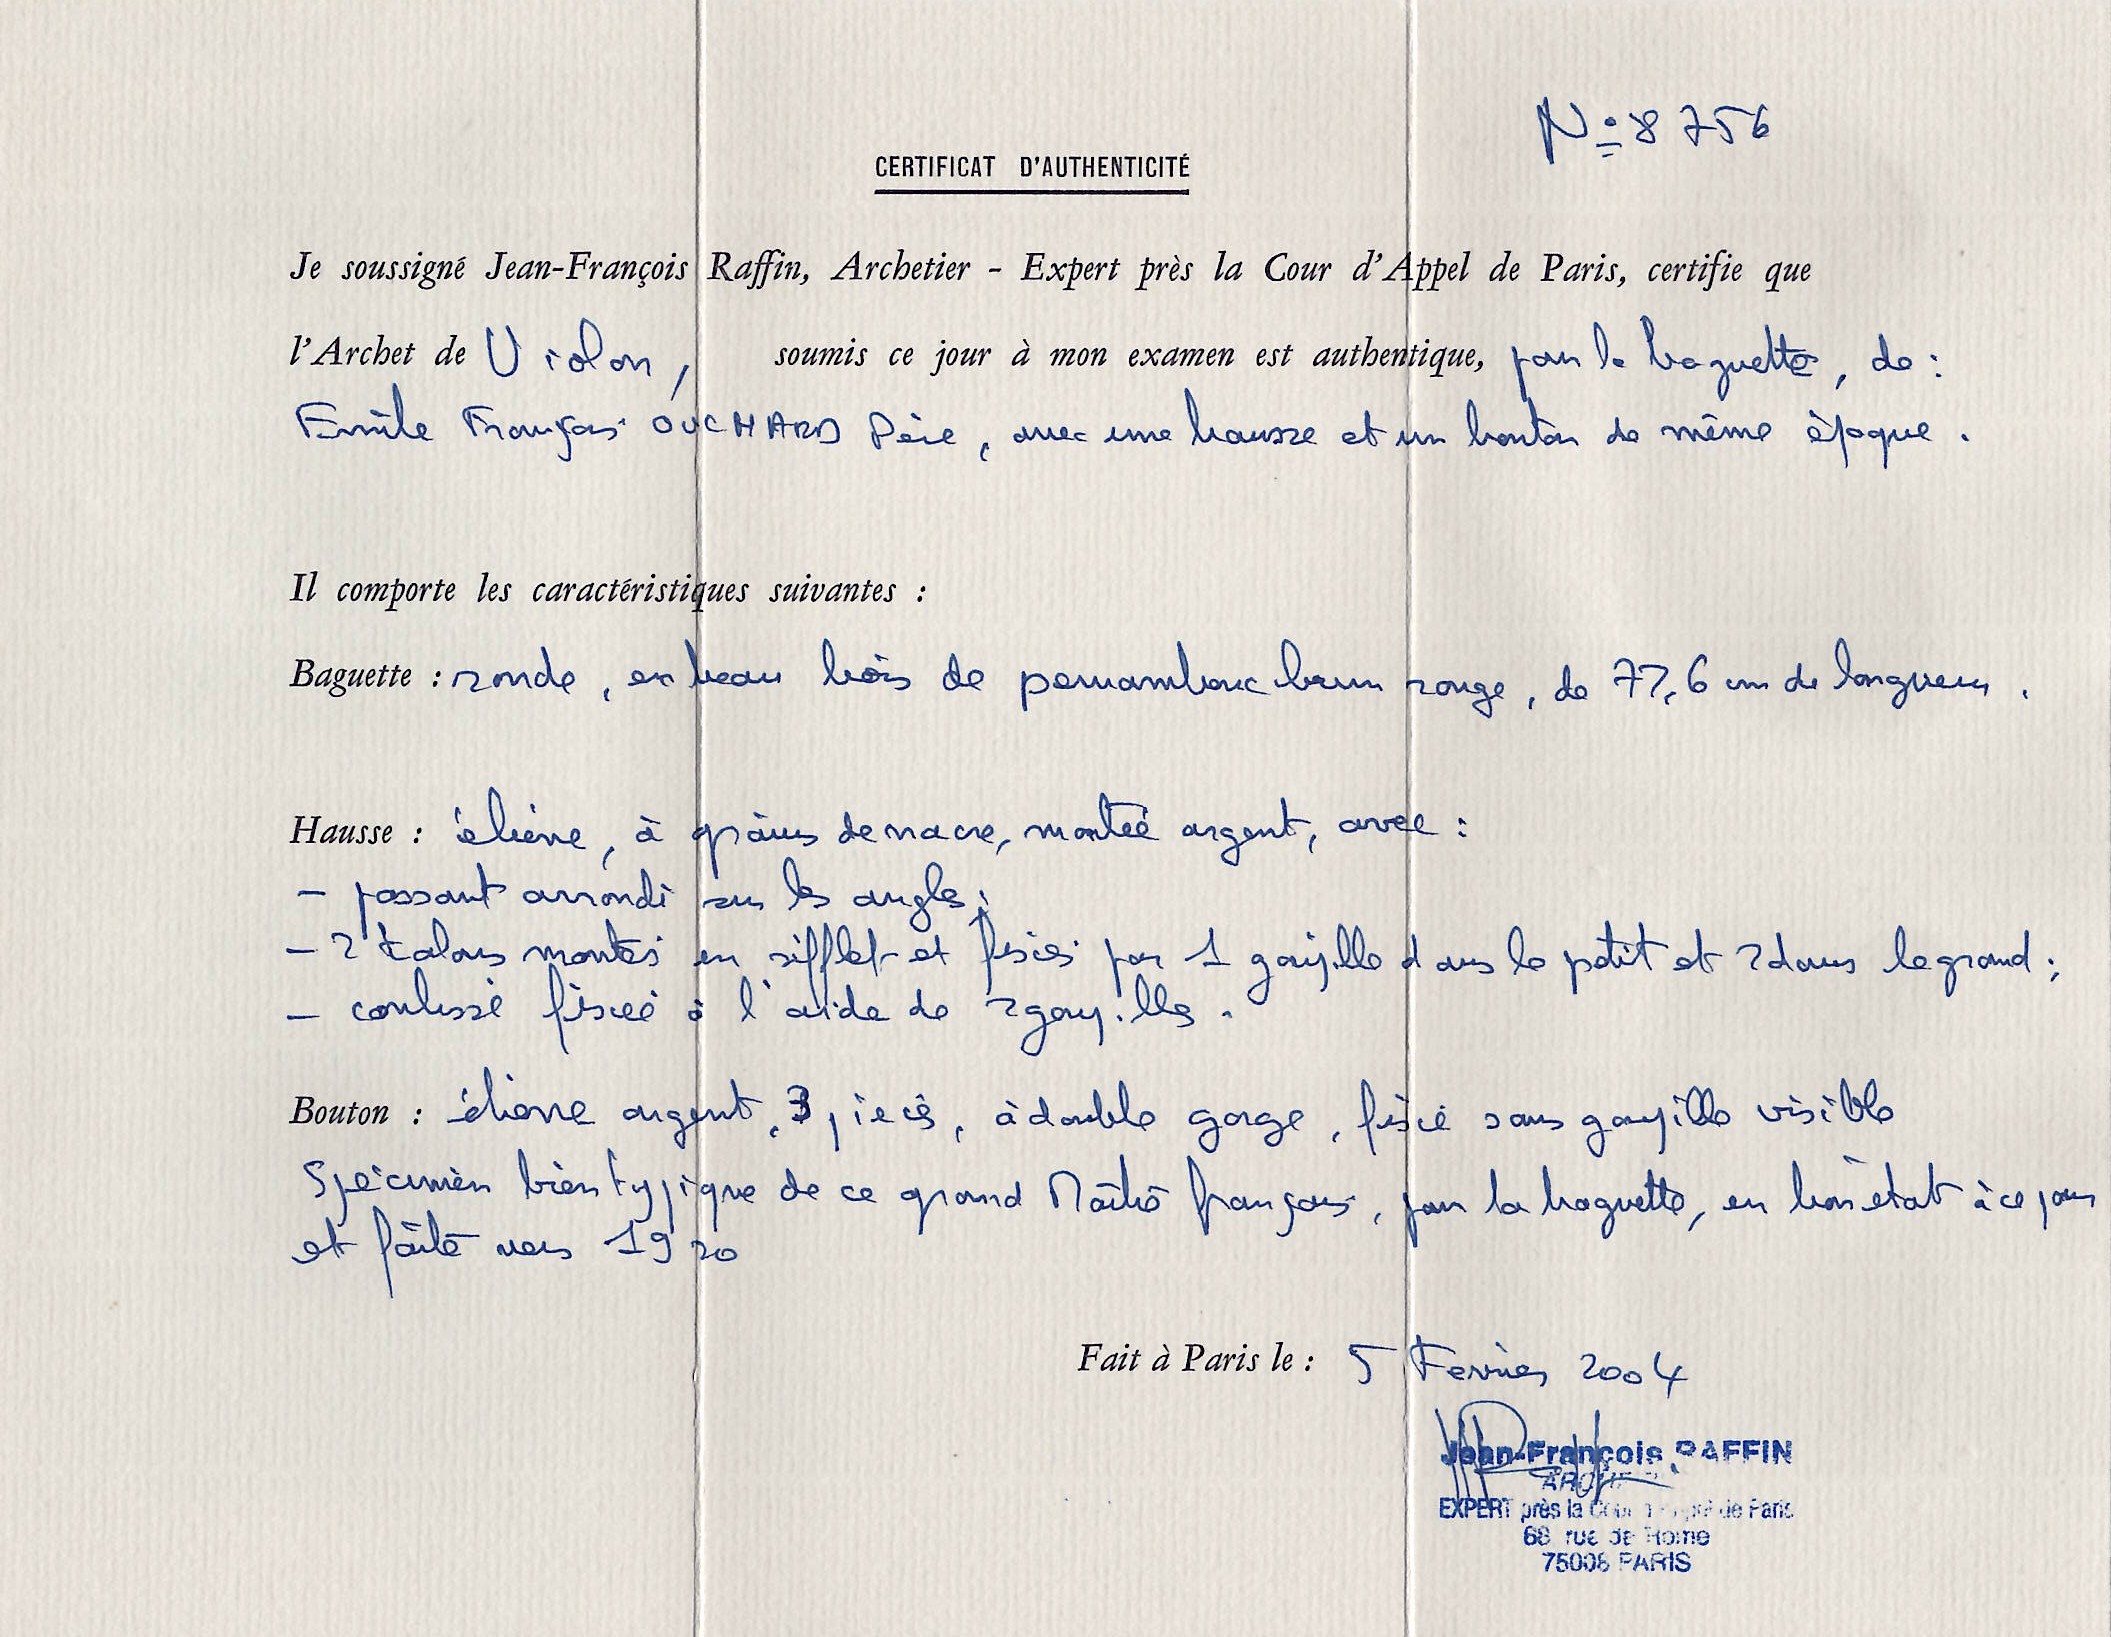 N° 8756
CERTIFICAT D'AUTHENTICITÉ
Je soussigné Jean-François Raffin, Archetier - Expert près la Cour d'Appel de Paris, certifie que
l'Archet de Violon, soumis ce jour à mon examen est authentique, pour la baguette, de :
Emile François OUCHARD Père, avec une hausse et un bouton de même époque.
Il comporte les caractéristiques suivantes :
Baguette : ronde, en beau bois de pernambouc brun rouge, de 77,6 cm de longueur.
Hausse : ébène, à grains de nacre, montée argent, avec :
- passant arrondi sur les angles;
- 2 talons montés en sifflet et fixés par 1 goupille dans le petit et 2 dans le grand;
- coulisse fixée à l'aide de 2 goupilles.
Bouton : ébène argent, 3 pièces, à double gorge, fixé sans goupille visible
Spécimen bien typique de ce grand Maître français, pour la baguette, en bon état à ce jour
et faite vers 1920
Fait à Paris le : 5 Fevrier 2004
Jean-François RAFFIN
EXPERT près la Cour d'Appel de Paris
68 rue de Rome
75008 PARIS